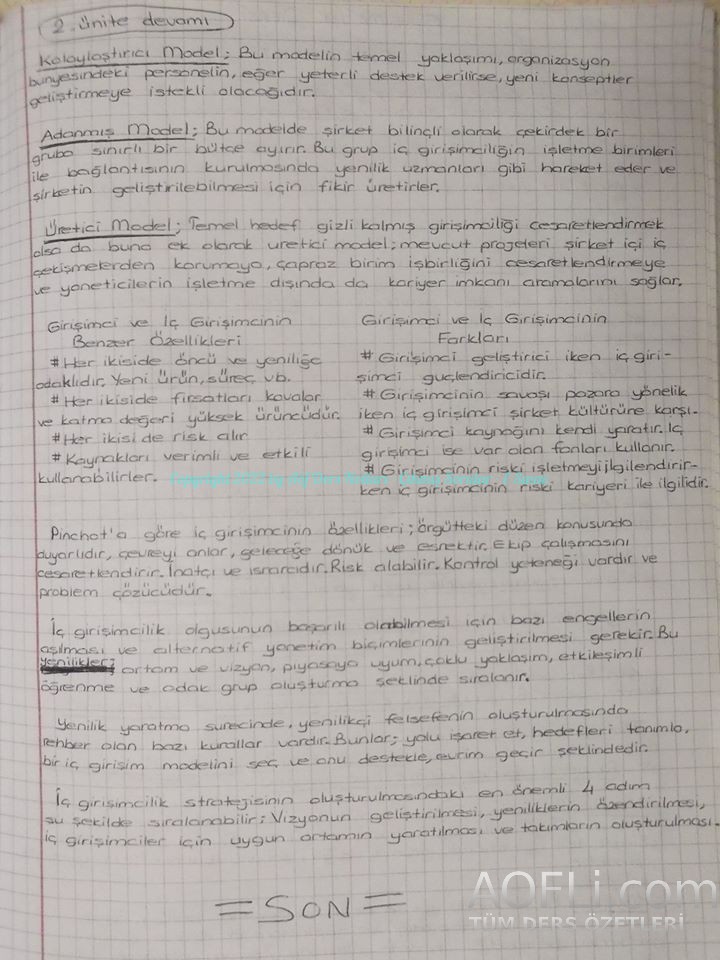 2. ünite devamı
Kolaylaştırıcı Model; Bu modelin temel yaklaşımı, organizasyon
bünyesindeki personelin, eğer yeterli destek verilirse, yeni konseptler
geliştirmeye istekli olacağıdır.
Adanmış Model; Bu modelde şirket bilinçli olarak çekirdek bir
gruba sınırlı bir bütçe ayırır. Bu grup iç girişimciliğin işletme birimleri
ile bağlantısının kurulmasında yenilik uzmanları gibi hareket eder ve
şirketin geliştirilebilmesi için fikir üretirler.
Üretici Model; Temel hedef gizli kalmış girişimciliği cesaretlendirmek
olsa da buna ek olarak üretici model; mevcut projeleri şirket içi iç
çekişmelerden korumaya, çapraz birim işbirliğini cesaretlendirmeye
ve yöneticilerin işletme dışında da kariyer imkanı aramalarını sağlar.
Girişimci ve İç Girişimcinin
Benzer Özellikleri
# Her ikiside öncü ve yeniliğe
odaklıdır. Yeni ürün, süreç vb.
# Her ikiside fırsatları kovalar
ve katma değeri yüksek ürüncüdür.
# Her ikisi de risk alır
# Kaynakları verimli ve etkili
kullanabilirler.
Girişimci ve İç Girişimcinin
Farkları
# Girişimci geliştirici iken iç giri-
şimci güçlendiricidir.
# Girişimcinin savaşı pazara yönelik
iken iç girişimci şirket kültürüne karşı.
# Girişimci kaynağını kendi yaratır. İç
girişimci ise var olan fonları kullanır.
# Girişimcinin riski işletmeyi ilgilendirir-
ken iç girişimcinin riski kariyeri ile ilgilidir.
Pinchot'a göre iç girişimcinin özellikleri; örgütteki düzen konusunda
duyarlıdır, çevreyi anlar, geleceğe dönük ve esnektir. Ekip çalışmasını
cesaretlendirir. İnatçı ve ısrarcıdır. Risk alabilir. Kontrol yeteneği vardır ve
problem çözücüdür.
İç girişimcilik olgusunun başarılı olabilmesi için bazı engellerin
aşılması ve alternatif yönetim biçimlerinin geliştirilmesi gerekir. Bu
yenilikler; ortam ve vizyon, piyasaya uyum, çoklu yaklaşım, etkileşimli
öğrenme ve odak grup oluşturma şeklinde sıralanır.
Yenilik yaratma sürecinde, yenilikçi felsefenin oluşturulmasında
rehber olan bazı kurallar vardır. Bunlar; yolu işaret et, hedefleri tanımla,
bir iç girişim modelini seç ve onu destekle, evrim geçir şeklindedir.
İç girişimcilik stratejisinin oluşturulmasındaki en önemli 4 adım
şu şekilde sıralanabilir: Vizyonun geliştirilmesi, yeniliklerin özendirilmesi,
iç girişimciler için uygun ortamın yaratılması ve takımların oluşturulması.
= SON =
AOFLi.com
TÜM DERS ÖZETLERİ